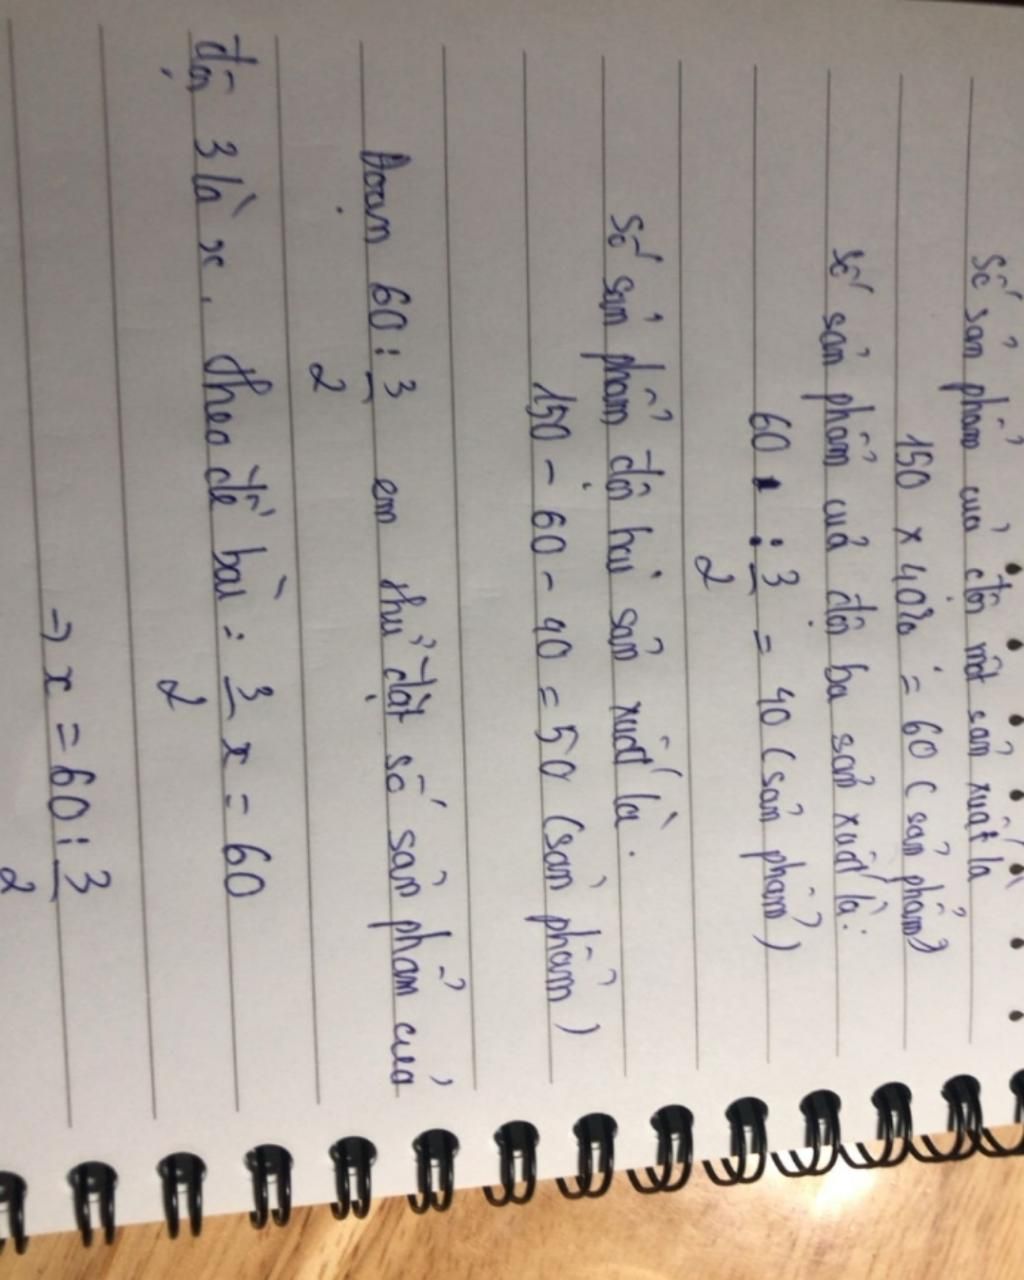 Số sản phẩm của đội một sản xuất là
150 x 40% = 60 ( sản phẩm)
Số sản phẩm của đội ba sản xuất là:
60 : 3/2 = 40 ( sản phẩm )
Số sản phẩm đội hai sản xuất là.
150 - 60 - 40 = 50 (sản phẩm )
Đoạn 60 : 3/2 em thử đặt số sản phẩm của
đội 3 là x. theo đề bài : 3/2 x = 60
→ x = 60 : 3/2